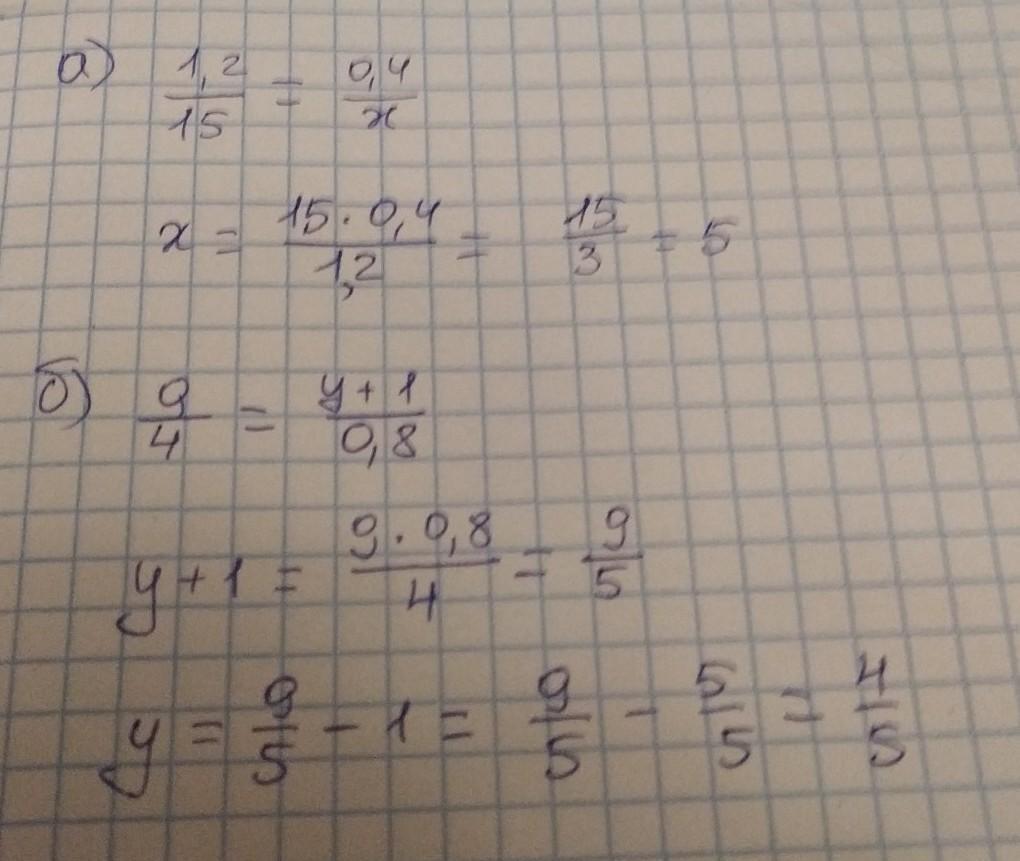 а) 1,2/15 = 0,4/x
x = 15·0,4/1,2 = 15/3 = 5
б) 9/4 = y+1/0,8
y+1 = 9·0,8/4 = 9/5
y = 9/5 - 1 = 9/5 - 5/5 = 4/5